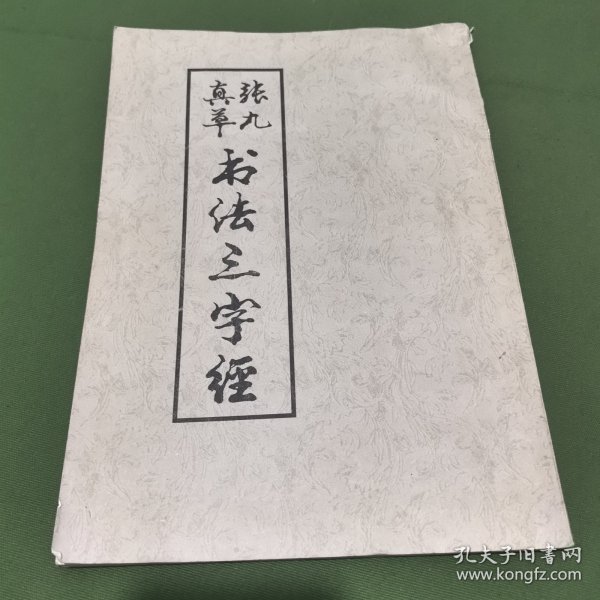 张九
真草
书法三字經
孔夫子旧書网
www.kongfz.com